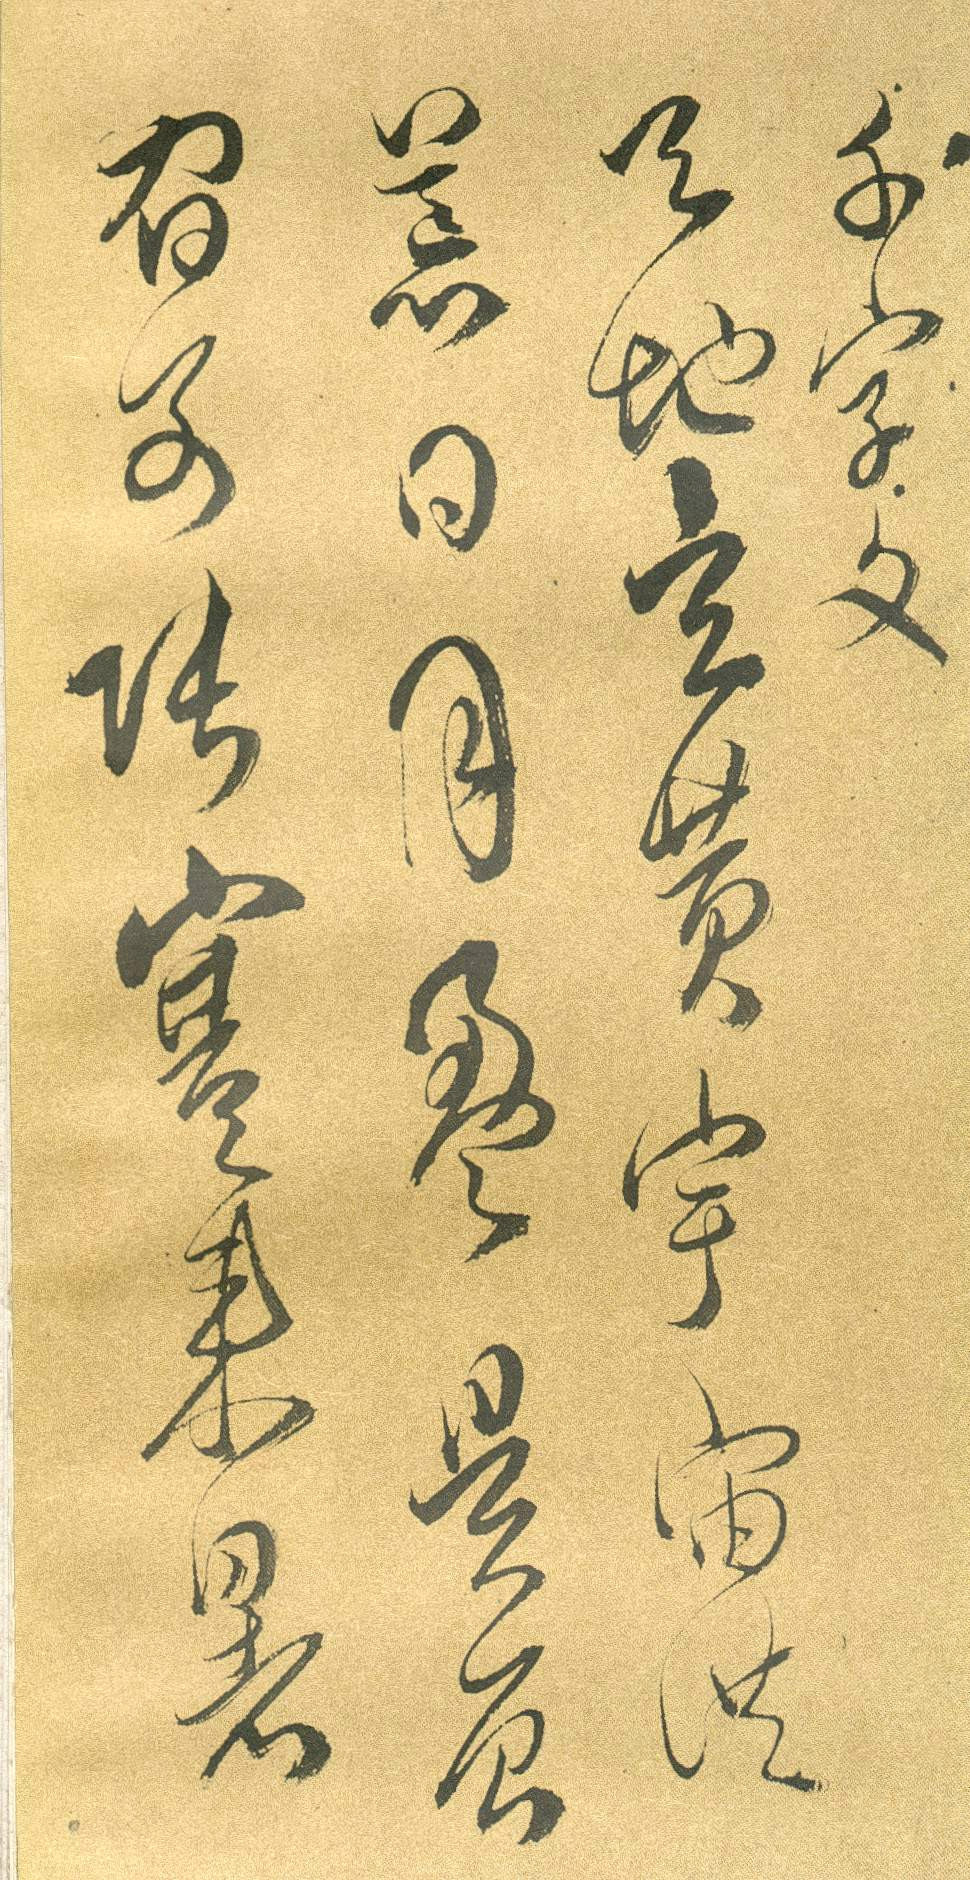 千字文
天地玄黄宇宙洪
荒日月盈昃辰
宿列張寒来暑